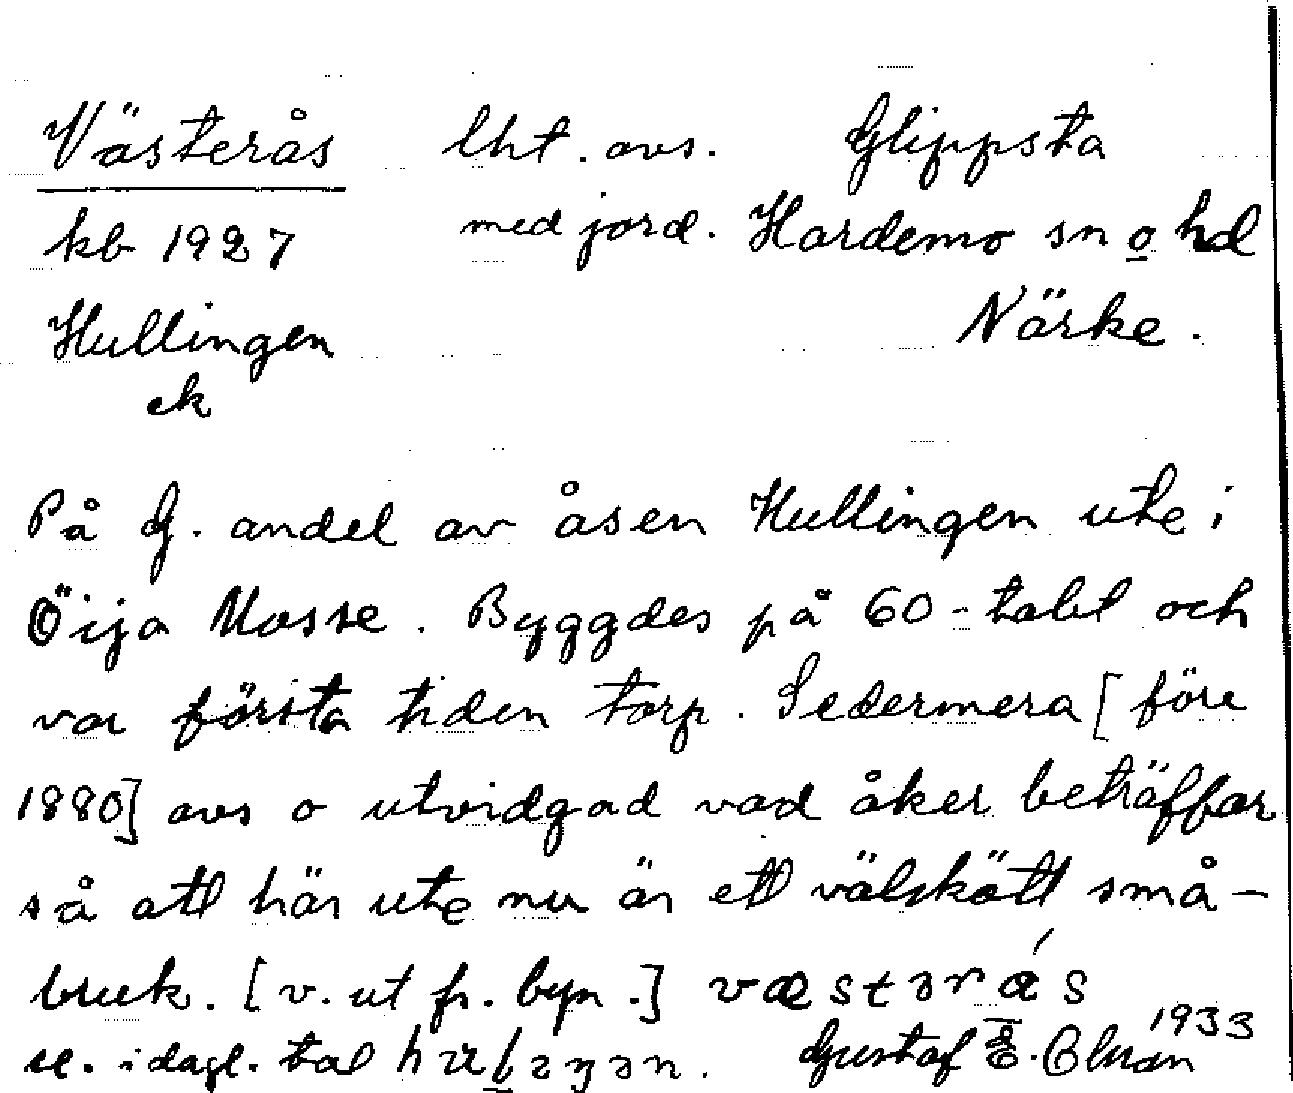 Västerås lht. avs. Glippsta
kb 1927 med jord. Hardemo sn o hd
Hullingen Närke.
ek
På G. andel av åsen Hullingen ute i
Öija Mosse. Byggdes på 60-talet och
var första tiden torp. Sedermera [före
1880] avs o utvidgad vad åker beträffar
så att här ute nu är ett välskött små-
bruk. [v. ut fr. byn.] væstərás
el. i dagl. tal 1933
Gustaf E.